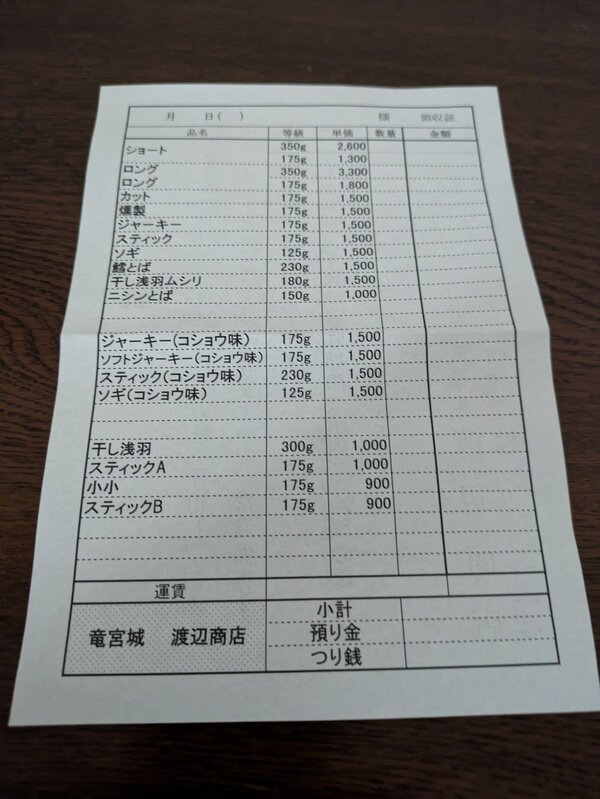 月 日( ) 様 領収証
品名 等級 単価 数量 金額
ショート 350g 2,600
175g 1,300
ロング 350g 3,300
ロング 175g 1,800
カット 175g 1,500
燻製 175g 1,500
ジャーキー 175g 1,500
スティック 175g 1,500
ソギ 125g 1,500
鱈とば 230g 1,500
干し浅羽ムシリ 180g 1,500
ニシンとば 150g 1,000
ジャーキー(コショウ味) 175g 1,500
ソフトジャーキー(コショウ味) 175g 1,500
スティック(コショウ味) 230g 1,500
ソギ(コショウ味) 125g 1,500
干し浅羽 300g 1,000
スティックA 175g 1,000
小小 175g 900
スティックB 175g 900
運賃
小計
竜宮城 渡辺商店 預り金
つり銭